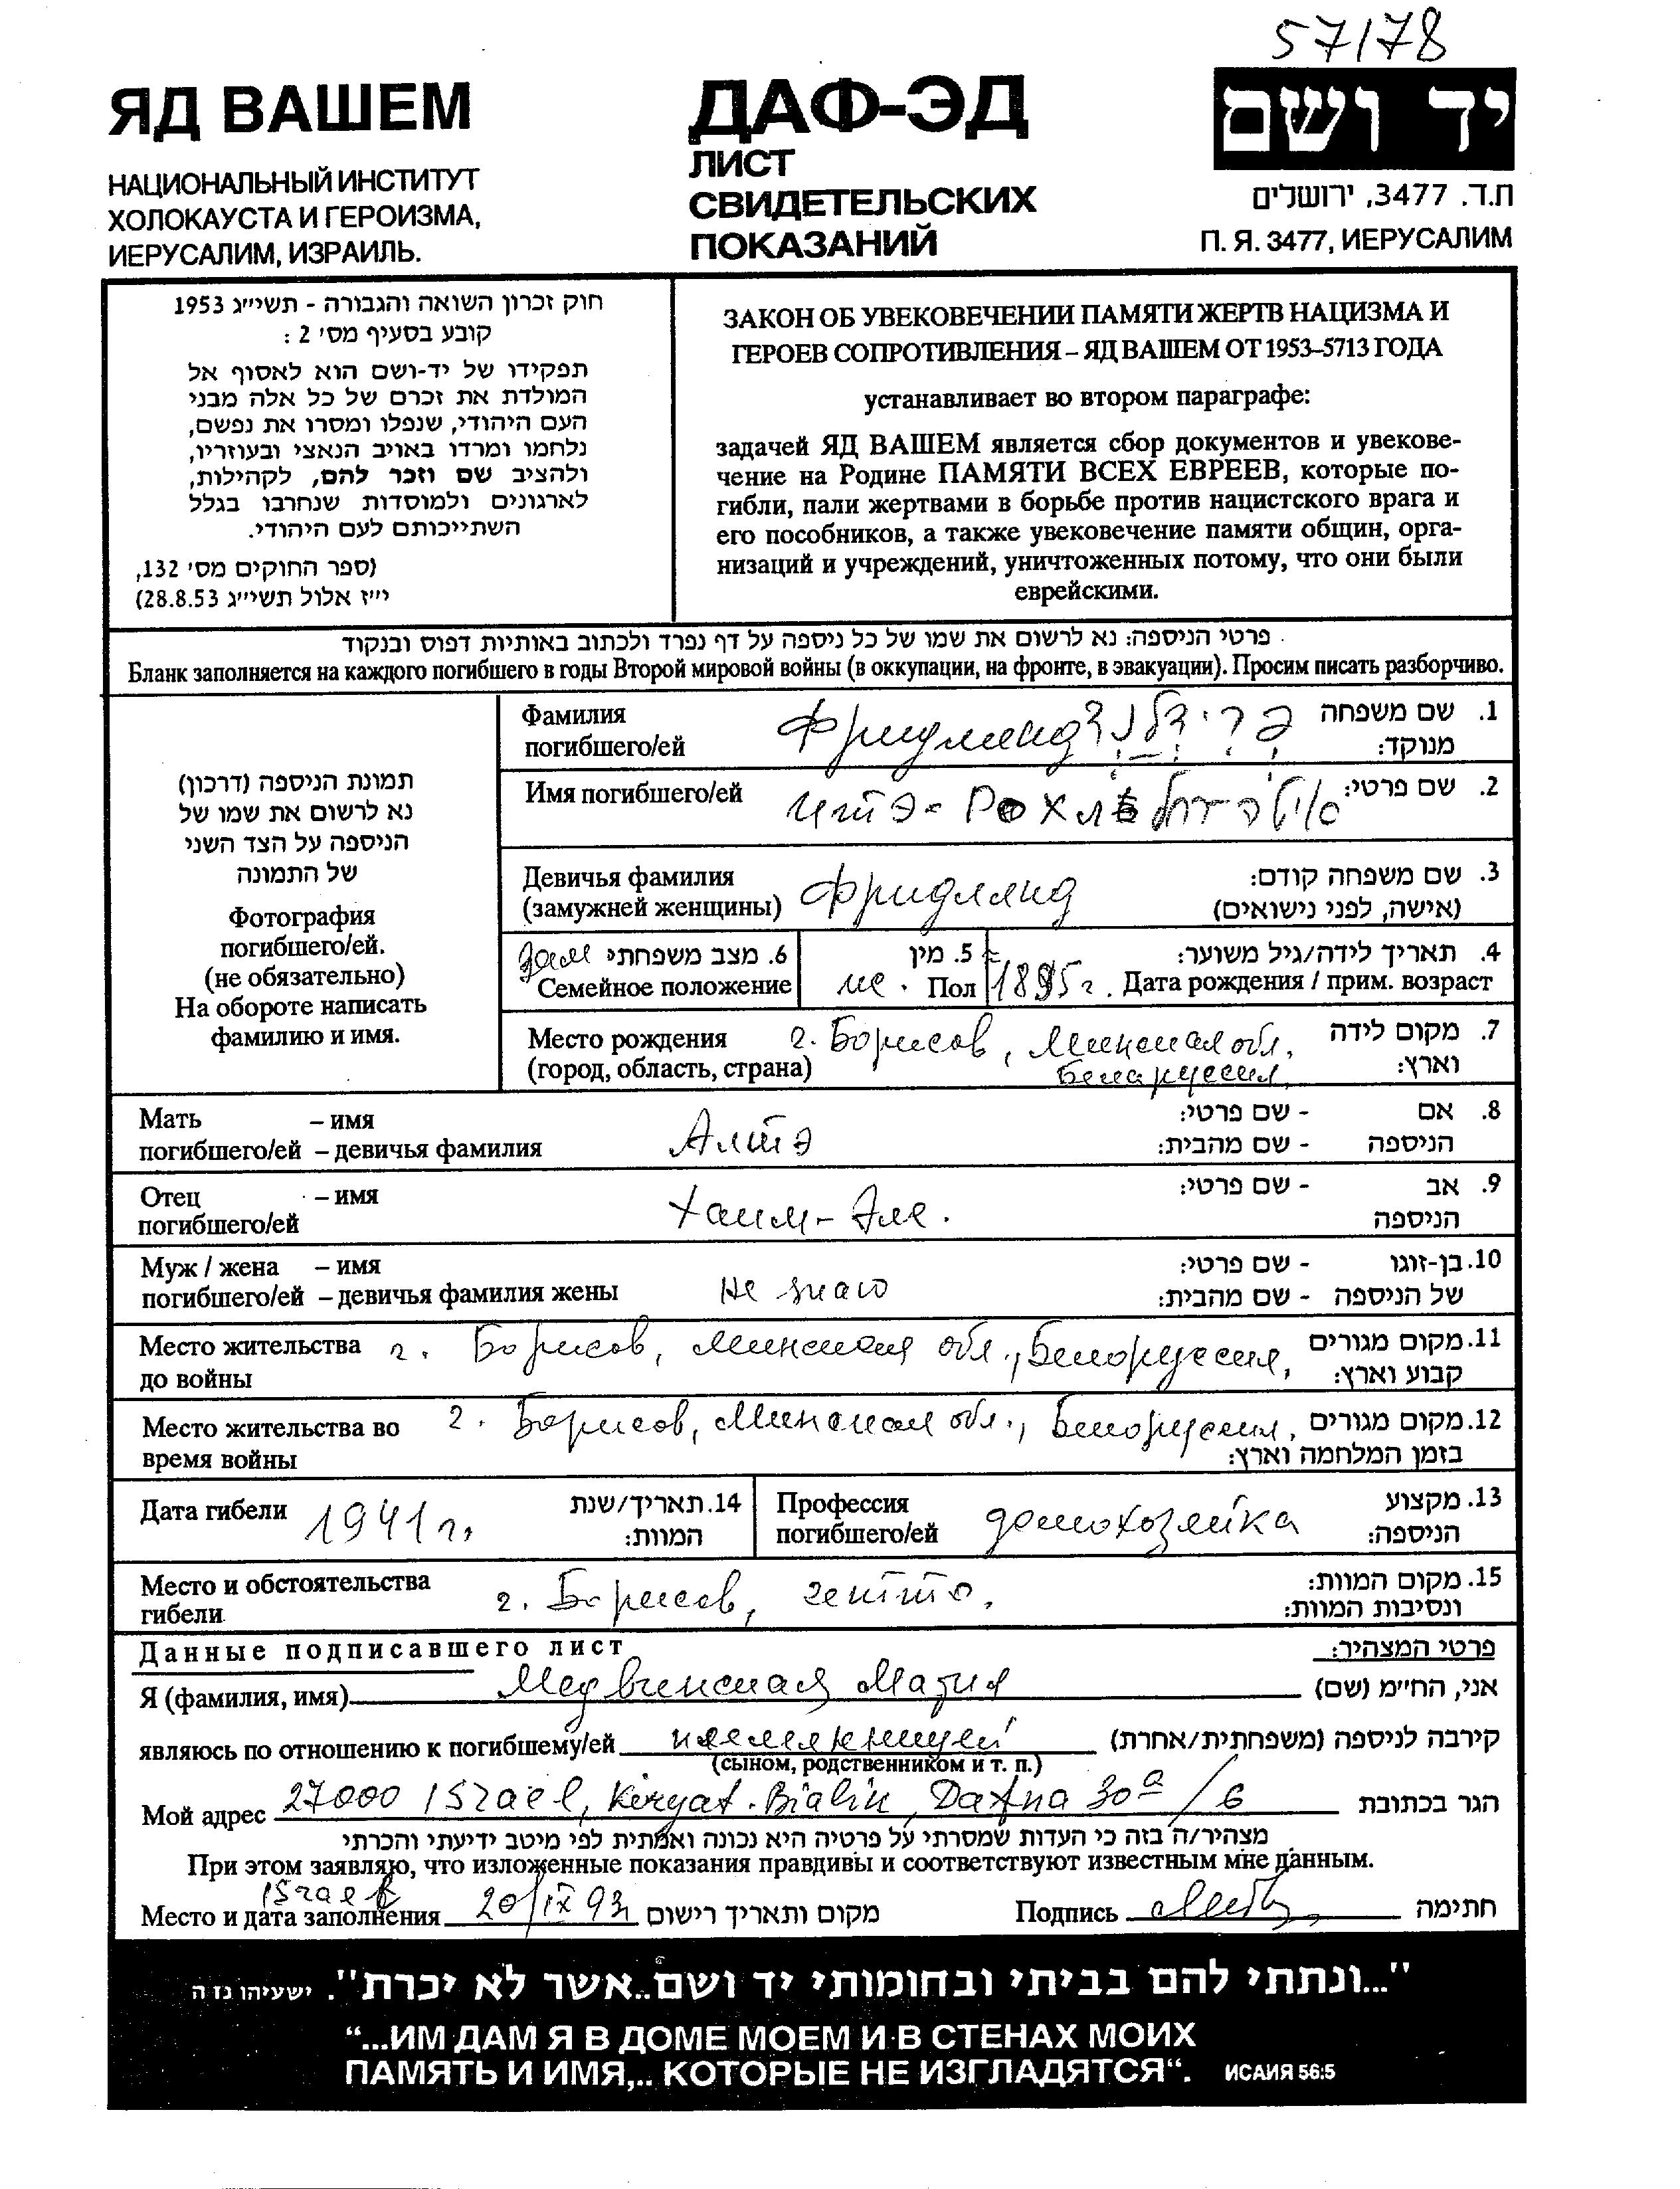 57178
ЯД ВАШЕМ
НАЦИОНАЛЬНЫЙ ИНСТИТУТ
ХОЛОКАУСТА И ГЕРОИЗМА,
ИЕРУСАЛИМ, ИЗРАИЛЬ.
ДАФ-ЭД
ЛИСТ
СВИДЕТЕЛЬСКИХ
ПОКАЗАНИЙ
יד ושם
ת.ד. 3477, ירושלים
П. Я. 3477, ИЕРУСАЛИМ
חוק זכרון השואה והגבורה - תשי״ג 1953
קובע בסעיף מס׳ 2 :
תפקידו של יד-ושם הוא לאסוף אל
המולדת את זכרם של כל אלה מבני
העם היהודי, שנפלו ומסרו את נפשם,
נלחמו ומרדו באויב הנאצי ובעוזריו,
ולהציב שם וזכר להם, לקהילות,
לארגונים ולמוסדות שנחרבו בגלל
השתייכותם לעם היהודי.
(ספר החוקים מס׳ 132,
י״ז אלול תשי״ג 28.8.53)
ЗАКОН ОБ УВЕКОВЕЧЕНИИ ПАМЯТИ ЖЕРТВ НАЦИЗМА И
ГЕРОЕВ СОПРОТИВЛЕНИЯ – ЯД ВАШЕМ ОТ 1953–5713 ГОДА
устанавливает во втором параграфе:
задачей ЯД ВАШЕМ является сбор документов и увекове-
чение на Родине ПАМЯТИ ВСЕХ ЕВРЕЕВ, которые по-
гибли, пали жертвами в борьбе против нацистского врага и
его пособников, а также увековечение памяти общин, орга-
низаций и учреждений, уничтоженных потому, что они были
еврейскими.
פרטי הניספה: נא לרשום את שמו של כל ניספה על דף נפרד ולכתוב באותיות דפוס ובנקוד
Бланк заполняется на каждого погибшего в годы Второй мировой войны (в оккупации, на фронте, в эвакуации). Просим писать разборчиво.
תמונת הניספה (דרכון)
נא לרשום את שמו של
הניספה על הצד השני
של התמונה
Фотография
погибшего/ей.
(не обязательно)
На обороте написать
фамилию и имя.
Фамилия Фридлянд פרידלנד 1. שם משפחה
погибшего/ей מנוקד:
Имя погибшего/ей Итэ-Рохле 2. שם פרטי:
Девичья фамилия Фридлянд 3. שם משפחה קודם:
(замужней женщины) (אישה, לפני נישואים)
6. מצב משפחתי 5. מין 4. תאריך לידה/גיל משוער:
зам Семейное положение же. Пол 1895 г. Дата рождения / прим. возраст
Место рождения г. Борисов, Минская обл, 7. מקום לידה
(город, область, страна) Беларуссия, וארץ:
Мать – имя Алтэ - שם פרטי: 8. אם
погибшего/ей – девичья фамилия - שם מהבית: הניספה
Отец – имя Хаим-Эле. - שם פרטי: 9. אב
погибшего/ей הניספה
Муж / жена – имя - שם פרטי: 10. בן-זוגו
погибшего/ей – девичья фамилия жены не знаю - שם מהבית: של הניספה
Место жительства г. Борисов, Минская обл., Белоруссия, 11. מקום מגורים
до войны קבוע וארץ:
Место жительства во г. Борисов, Минская обл., Белоруссия, 12. מקום מגורים
время войны בזמן המלחמה וארץ:
Дата гибели 1941 г, 14. תאריך/שנת
המוות:
Профессия домохозяйка 13. מקצוע
погибшего/ей הניספה:
Место и обстоятельства г. Борисов, гетто, 15. מקום המוות:
гибели ונסיבות המוות:
Данные подписавшего лист פרטי המצהיר:
Я (фамилия, имя) Медвинская Мария אני, הח״מ (שם)
являюсь по отношению к погибшему/ей племянницей קירבה לניספה (משפחתית/אחרת)
(сыном, родственником и т. п.)
Мой адрес 27000 ISrael, Kiryat-Bialik, Dafna 30ª/6 הגר בכתובת
מצהיר/ה בזה כי העדות שמסרתי על פרטיה היא נכונה ואמתית לפי מיטב ידיעתי והכרתי
При этом заявляю, что изложенные показания правдивы и соответствуют известным мне данным.
ISrael
Место и дата заполнения 20/IX 93 מקום ותאריך רישום Подпись חתימה
"...ונתתי להם בביתי ובחומותי יד ושם..אשר לא יכרת". ישעיהו נז ה
“...ИМ ДАМ Я В ДОМЕ МОЕМ И В СТЕНАХ МОИХ
ПАМЯТЬ И ИМЯ,.. КОТОРЫЕ НЕ ИЗГЛАДЯТСЯ“. ИСАИЯ 56:5